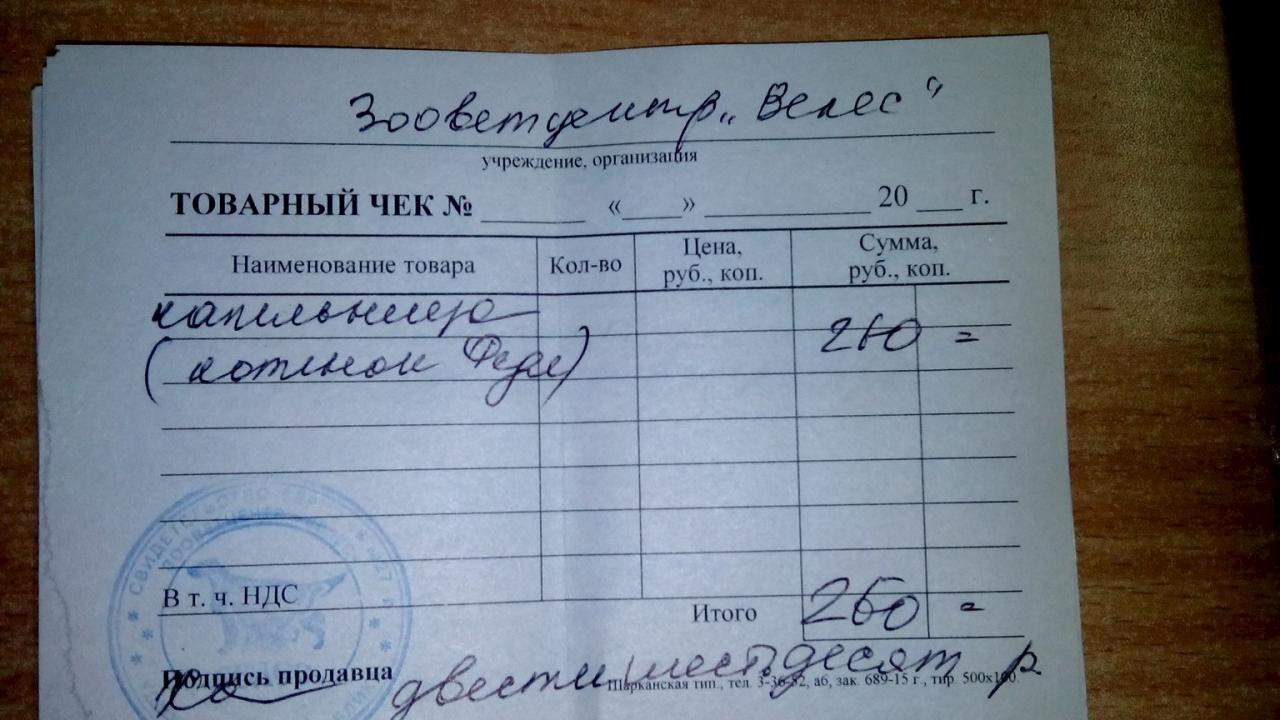 Зооветцентр „Велес"
учреждение, организация
ТОВАРНЫЙ ЧЕК № «» 20 г.
Наименование товара Кол-во Цена, руб., коп. Сумма, руб., коп.
капельница
(котенок Федя) 260 =
В т. ч. НДС
Итого 260 =
Подпись продавца двести шестьдесят р
Шарканская тип., тел. 3-36-32, а6, зак. 689-15 г., тир. 500х100
СВИДЕТЕЛЬСТВО